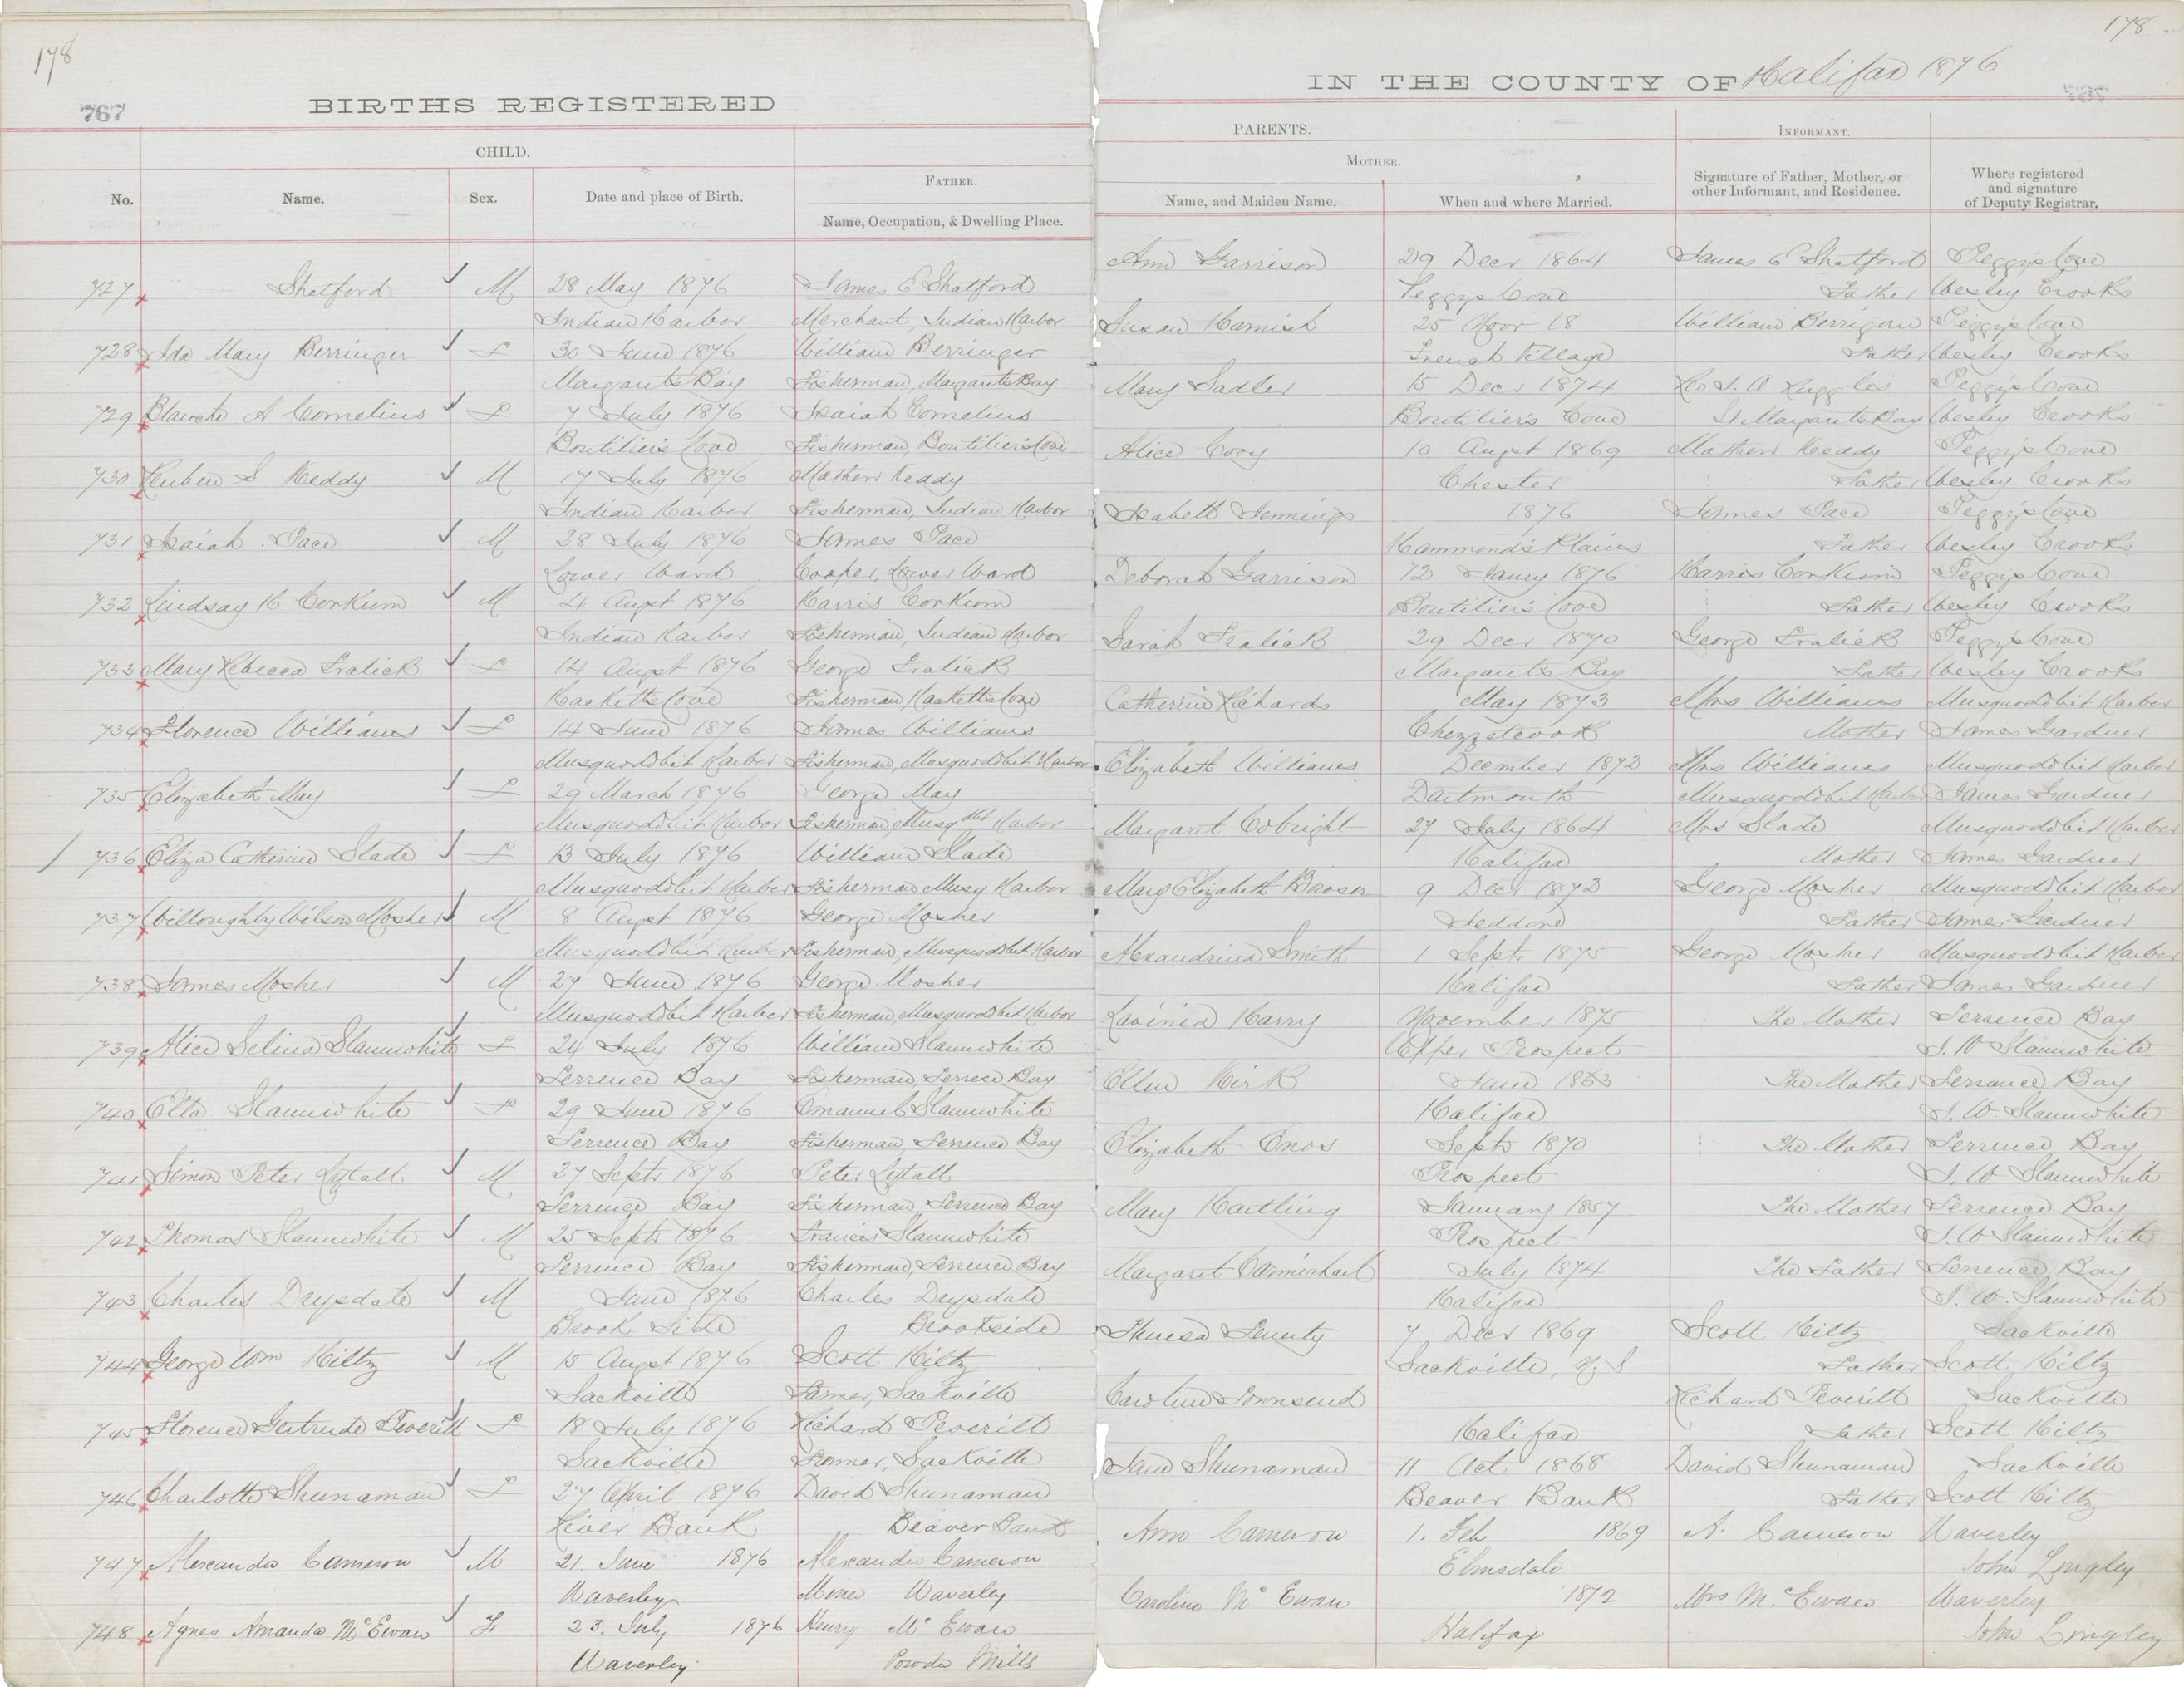 178
178
767
BIRTHS REGISTERED
IN THE COUNTY OF Halifax 1876
CHILD.
PARENTS.
INFORMANT.
No.
Name.
Sex.
Date and place of Birth.
FATHER.
Name, Occupation, & Dwelling Place.
MOTHER.
Name, and Maiden Name.
When and where Married.
Signature of Father, Mother, or other Informant, and Residence.
Where registered and signature of Deputy Registrar.
727 Shatford M 28 May 1876 James E Shatford Ann Garrison 29 Decr 1864 James E Shatford Peggys Cove
Indian Harbor Merchant, Indian Harbor Peggys Cove Father Wesley Crooks
728 Ida Mary Berringer F 30 June 1876 William Berringer Susan Harnish 25 Novr 18 William Berrigan Peggys Cove
Margarets Bay Fisherman, Margarets Bay French Village Father Wesley Crooks
729 Blanche A Cornelius F 7 July 1876 Isaiah Cornelius Mary Sadler 15 Decr 1874 Ruggles Peggys Cove
Boutilier's Cove Fisherman, Boutilier's Cove Boutilier's Cove St Margarets Bay Wesley Crooks
730 Reuben S Keddy M 17 July 1876 Mathew Keddy Alice Covy 10 Augst 1869 Mathew Keddy Peggys Cove
Indian Harbor Fisherman, Indian Harbor Chester Father Wesley Crooks
731 Isaiah Pace M 28 July 1876 James Pace Isabell Jennings 1876 James Pace Peggys Cove
Lower Ward Cooper, Lower Ward Hammond's Plains Father Wesley Crooks
732 Lindsay H Corkum M 4 Augst 1876 Harris Corkum Deborah Garrison 12 Jany 1876 Harris Corkum Peggys Cove
Indian Harbor Fisherman, Indian Harbor Boutilier's Cove Father Wesley Crooks
733 Mary Rebecca Fralick F 14 Augst 1876 George Fralick Sarah Fralick 29 Decr 1870 George Fralick Peggys Cove
Hacketts Cove Fisherman, Hacketts Cove Margarets Bay Father Wesley Crooks
734 Florence Williams F 14 June 1876 James Williams Catherine Richards May 1873 Mrs Williams Musquodobit Harbor
Musquodobit Harbor Fisherman, Musquodobit Harbor Chezzetcook Mother James Gardner
735 Elizabeth May F 29 March 1876 George May Elizabeth Williams December 1872 Mrs Williams Musquodobit Harbor
Musquodobit Harbor Fisherman Musqdbt Harbor Dartmouth Musquodobit Harbor James Gardner
736 Eliza Catherine Slade F 13 July 1876 William Slade Margaret Cobright 27 July 1864 Mrs Slade Musquodobit Harbor
Musquodobit Harbor Fisherman Musq Harbor Halifax Mother James Gardner
737 Willoughby Wilson Mosher M 8 Augst 1876 George Mosher Mary Elizabeth 9 Decr 1872 George Mosher Musquodobit Harbor
Musquodobit Harbor Fisherman, Musquodobit Harbor Jeddore Father James Gardner
738 James Mosher M 27 June 1876 George Mosher Alexandrina Smith 1 Septr 1875 George Mosher Musquodobit Harbor
Musquodobit Harbor Fisherman, Musquodobit Harbor Halifax Father James Gardner
739 Alice Selina Slaunwhite F 24 July 1876 William Slaunwhite Lavinia Harry November 1875 The Mother Terrence Bay
Terrence Bay Fisherman, Terrece Bay Upper Prospect S. W Slaunwhite
740 Etta Slaunwhite F 29 June 1876 Emanuel Slaunwhite Ellen Kirk June 1863 The Mother Terrance Bay
Terrence Bay Fisherman Terrence Bay Halifax S. W Slaunwhite
741 Simon Peter M 27 Septr 1876 Peter Elizabeth Enos Septr 1870 The Mother Terrence Bay
Terrence Bay Fisherman, Terrence Bay Prospect S. W Slaunwhite
742 Thomas Slaunwhite M 25 Septr 1876 Francis Slaunwhite Mary Hartling January 1857 The Mother Terrence Bay
Terrence Bay Fisherman, Terrence Bay Prospect S. W Slaunwhite
743 Charles Drysdale M June 1876 Charles Drysdale Margaret Carmichael July 1874 The Father Terrence Bay
Brook Side Brookside Halifax S. W. Slaunwhite
744 George Wm Hiltz M 15 Augst 1876 Scott Hiltz Theresa 7 Decr 1869 Scott Hiltz Sackville
Sackville Farmer, Sackville Sackville, N. S Father Scott Hiltz
745 Florence Gertrude Peverill F 18 July 1876 Richard Peverill Caroline Townsend Richard Peverill Sackville
Sackville Farmer, Sackville Halifax Father Scott Hiltz
746 Charlotte Shunaman F 27 April 1876 David Shunaman Jane Shunaman 11 Oct 1868 David Shunaman Sackville
River Bank Beaver Bank Beaver Bank Father Scott Hiltz
747 Alexander Cameron M 21. June 1876 Alexander Cameron Ann Cameron 1. Feb 1869 A. Cameron Waverley
Waverley Miner Waverley Elmsdale John Lingley
748 Agnes Amanda McEwan F 23. July 1876 Henry McEwan Caroline McEwan 1872 Mrs McEwan Waverley
Waverley Powder Mills Halifax John Lingley